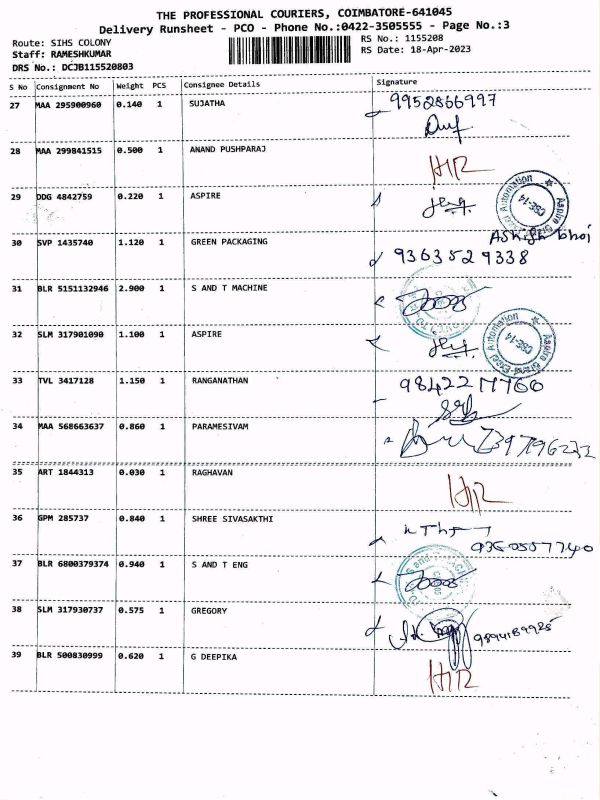 THE PROFESSIONAL COURIERS, COIMBATORE-641045
Delivery Runsheet - PCO - Phone No.:0422-3505555 - Page No.:3
Route: SIHS COLONY RS No.: 1155208
Staff: RAMESHKUMAR RS Date: 18-Apr-2023
DRS No.: DCJB115520803
S No Consignment No Weight PCS Consignee Details Signature
27 MAA 295900960 0.140 1 SUJATHA 9952866997
28 MAA 299841515 0.500 1 ANAND PUSHPARAJ
29 DDG 4842759 0.220 1 ASPIRE
Aspire Brand-Excel Automation CBE-14
30 SVP 1435740 1.120 1 GREEN PACKAGING Ashish bhoi
9363529338
31 BLR 5151132946 2.900 1 S AND T MACHINE
32 SLM 317901090 1.100 1 ASPIRE
Aspire Brand-Excel Automation CBE-14
33 TVL 3417128 1.150 1 RANGANATHAN
34 MAA 568663637 0.860 1 PARAMESIVAM
35 ART 1844313 0.030 1 RAGHAVAN
36 GPM 285737 0.840 1 SHREE SIVASAKTHI
37 BLR 6800379374 0.940 1 S AND T ENG
38 SLM 317930737 0.575 1 GREGORY
39 BLR 500830999 0.620 1 G DEEPIKA